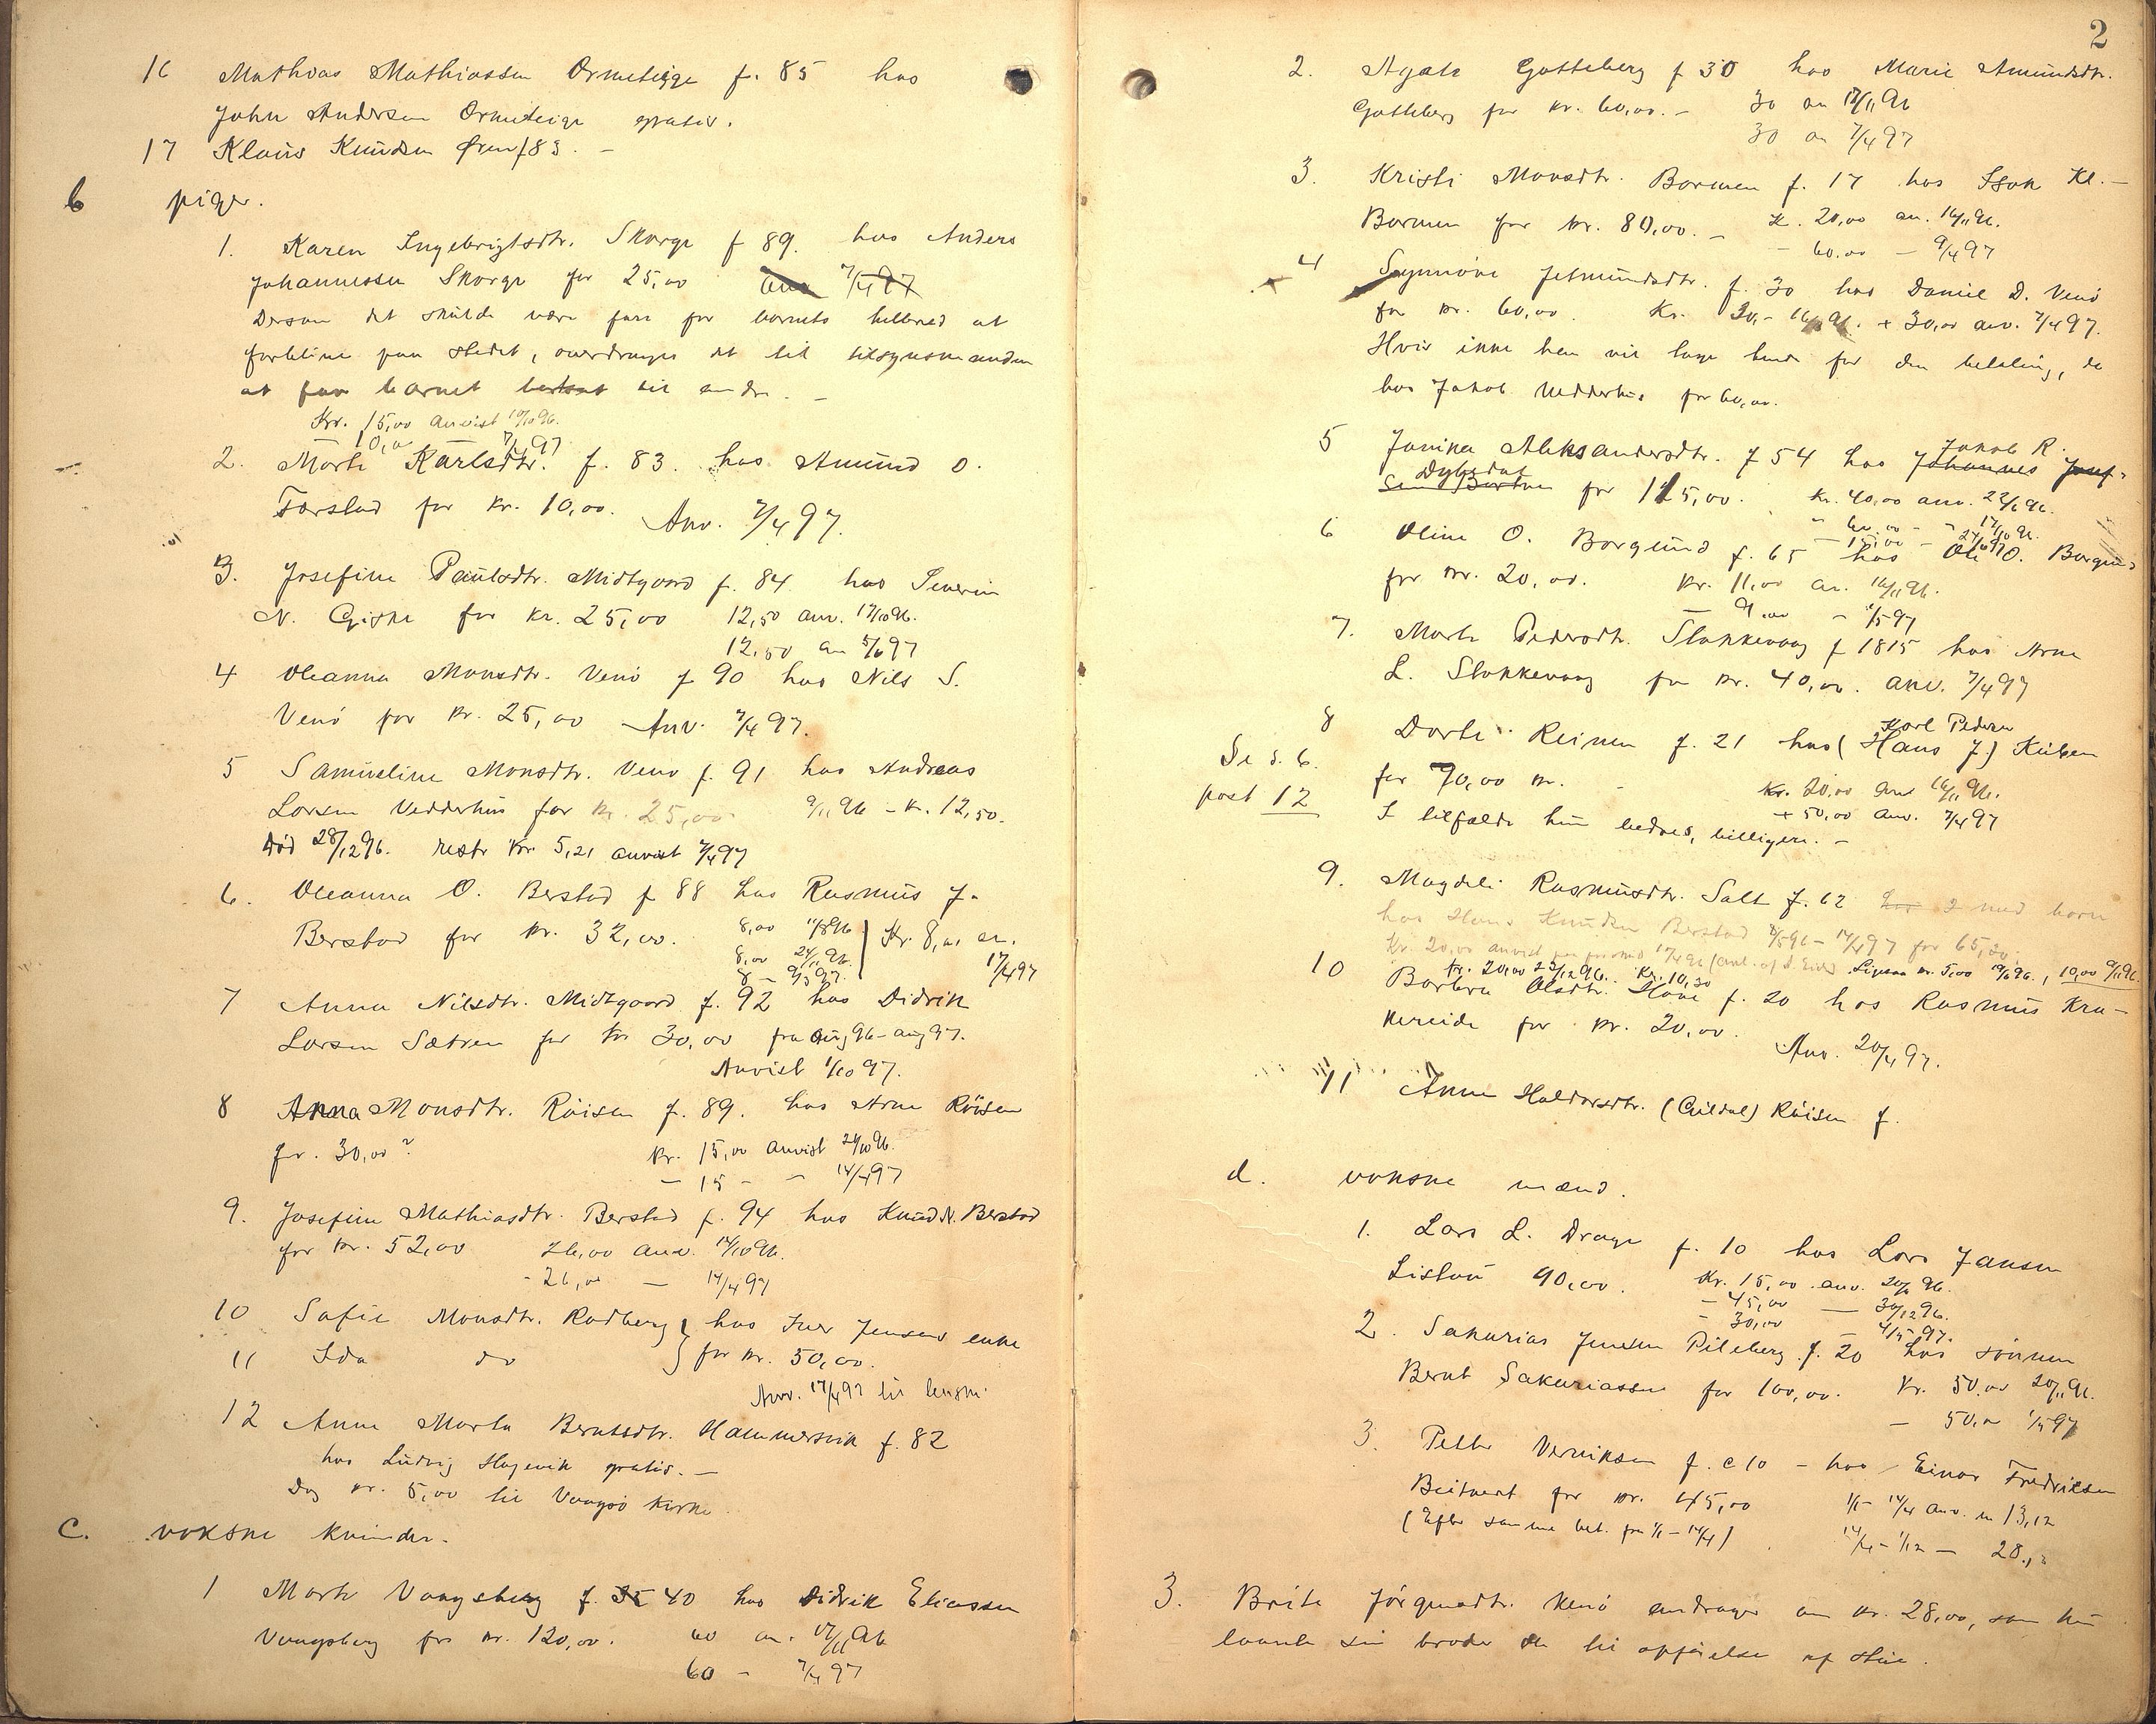 16 Mathias Mathiassen Ormeteigge f. 85 hos
John Andersen Ormeteige gratis.
17 Klaus Knudsen Øren f 83. –
b piger.
1. Karen Ingebrigtsdtr. Skorge f 89. hos Anders
Johannessen Skorge for 25,00 Anv 7/4 97
Dersom det skulde være fare for barnets helbred at
forblive paa stedet, overdrages det til tilsynsmanden
at faa barnet bortsat til andre. –
Kr. 15,00 anvist 17/10 96.
– 10,00 – 7/4 97
2. Marte Karlsdtr. f. 83. hos Amund O.
Førstad for kr. 10,00. Anv. 7/4 97.
3. Josefine Paulsdtr. Midtgaard f. 84 hos Severin
N. Giske for kr. 25,00 12,50 anv. 17/10 96.
12,50 an 5/6 97
4 Oleanna Monsdtr. Venö f 90 hos Nils S.
Venö for kr. 25,00 Anv. 7/4 97.
5 Samueline Monsdtr. Venö f. 91 hos Andreas
Larsen Vedderhus for kr. 25,00. 9/11 96 – kr. 12,50.
Död 28/12 96. restr kr. 5,21 anvist 7/4 97
6. Oleanna O. Berstad f 88 hos Rasmus J.
Berstad for kr. 32,00. 8,00 11/8 96 Kr. 8,00 an.
8,00 24/11 96. 17/4 97
8 – 9/3 97.
7 Anna Nilsdtr. Midtgaard f. 92 hos Didrik
Larsen Sætren for kr 30,00 fra aug 96 – aug 97.
Anvist 1/10 97.
8 Anna Monsdtr. Röisen f. 89. hos Arne Röisen
for. 30,00? kr. 15,00 anvist 24/10 96.
– 15 – – 14/4 97
9. Josefine Mathiasdtr. Berstad f. 94 hos Knud N. Berstad
for kr. 52,00 26,00 anv. 14/10 96.
- 26,00 — 14/4 97
10 Sofie Monsdtr. Rødberg hos Iver Jensens enke
11 Ida do for kr. 50,00.
Anv. 17/4 97 til lensm.
12 Anne Marta Berntsdtr. Hammersvik f. 82
hos Ludvig Hagevik gratis. –
Dog kr. 5,00 til Vaagsö kirke.
c. voksne kvinder.
1 Marte Vaagsberg f. 40 hos Didrik Eliassen
Vaagsberg for kr. 120,00. 60 an. 17/11 96
60 – 7/4 97
2
2. Agate Gotteberg f 30 hos Marie Amundsdtr.
Gotteberg for kr. 60,00. – 30 an 17/11 96
30 an 7/4 97
3. Kristi Monsdtr. Barmen f. 17 hos Isak Kl. –
Barmen for kr. 80,00. – K. 20,00 an. 16/11 96.
– 60.00 – 9/4 97
4 Synnöve Jetmundsdtr. f. 30 hos Daniel D. Venö
for kr. 60,00. Kr. 30,- 16/11 96. + 30,00 anv. 7/4 97.
Hvis ikke han vil tage hende for den betaling, da
hos Jakob Vedderhus for 60,00.
5 Janika Aleksandersdtr. f 54 hos Johannes
Jakob R.
Dybedal for 115,00. Kr. 40,00 anv. 22/6 96.
" 60,00 – " 17/10 96.
– 15,00 –
6 Oline O. Borgund f. 65 hos Ole O. Borgund
for kr. 20,00. Kr. 11,00 an. 16/11 96.
— 9.00 – 1/5 97
7. Marte Pedersdtr. Stokkevaag f 1815 hos Arne
L. Stokkevaag for kr. 40,00. anv. 7/4 97
8 Dorte Reinen f. 21 hos (Hans J.)
Karl Pedersen
Se s. 6. for 70,00 kr. Kr. 20,00 anv 16/11 96.
post 12 + 50,00 anv. 7/4 97
I tilfælde hun bedres, billigere. –
9. Magdeli Rasmusdtr. Salt f. 62 hos 2 med barn
hos Hans Knudsen Berstad 9/5 96 – 14/4 97 for 65,20.
Kr. 20,00 anvist
kr. 20,00 23/12 96. Kr. 10,30
10 Barbra Olsdtr. Hove f. 20 hos Rasmus Kra-
kereide for kr. 20,00. Anv. 20/4 97.
11 Anne Haldorsdtr. (Gildal) Röisen f.
d. voksne mænd.
1. Lars L. Drage f. 10 hos Lars Jansen
Listau 90,00. Kr. 15,00 anv. 20/6 96.
– 45,00 — 30/12 96.
– 30,00 – 4/5 97.
2. Sakarias Jensen Pileberg f. 20 hos sönnen
Bernt Sakariassen for 100,00. Kr. 50,00 20/11 96.
— 50,00 1/5 97
3. Petter Verniksen f. c 10 – hos Einar Fredriksen
Beitveit for kr. 45,00 1/1 – 14/4 anv. m 13,12
(Efter samme bet. fra 1/1 – 14/4) 14/4 – 1/12 –
3. Brite Jörgensdtr. Venö andrager om kr. 28,00, som hun
laante sin broder til opförelse af stue.